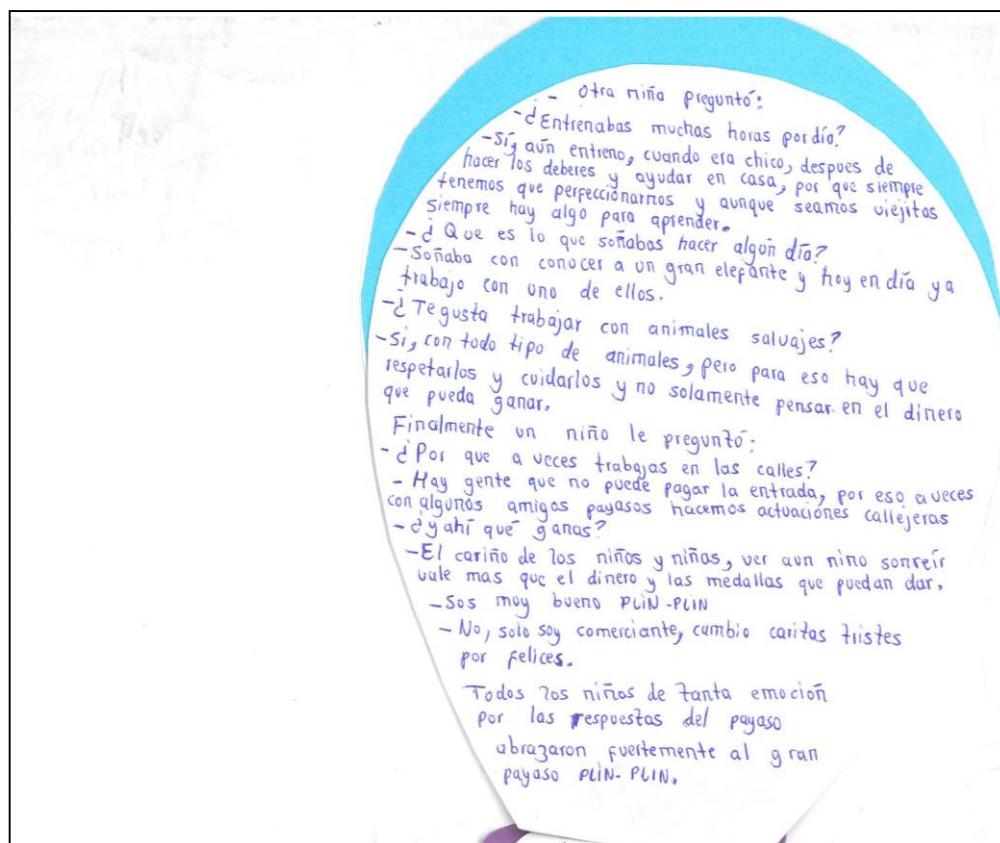 - Otra niña preguntó:
-¿Entrenabas muchas horas por día?
-Sí, aún entreno, cuando era chico, despues de
hacer los deberes y ayudar en casa, por que siempre
tenemos que perfeccionarnos y aunque seamos viejitos
siempre hay algo para aprender.
-¿Que es lo que soñabas hacer algún día?
-Soñaba con conocer a un gran elefante y hoy en día ya
trabajo con uno de ellos.
-¿Te gusta trabajar con animales salvajes?
-Si, con todo tipo de animales, pero para eso hay que
respetarlos y cuidarlos y no solamente pensar en el dinero
que pueda ganar.
Finalmente un niño le preguntó:
-¿Por que a veces trabajas en las calles?
- Hay gente que no puede pagar la entrada, por eso a veces
con algunos amigos payasos hacemos actuaciones callejeras
-¿y ahí qué ganas?
-El cariño de los niños y niñas, ver aun nino sonreír
vale mas que el dinero y las medallas que puedan dar.
-Sos muy bueno PLIN-PLIN
- No, solo soy comerciante, cambio caritas tristes
por felices.
Todos los niños de tanta emoción
por las respuestas del payaso
abrazaron fuertemente al gran
payaso PLIN-PLIN.